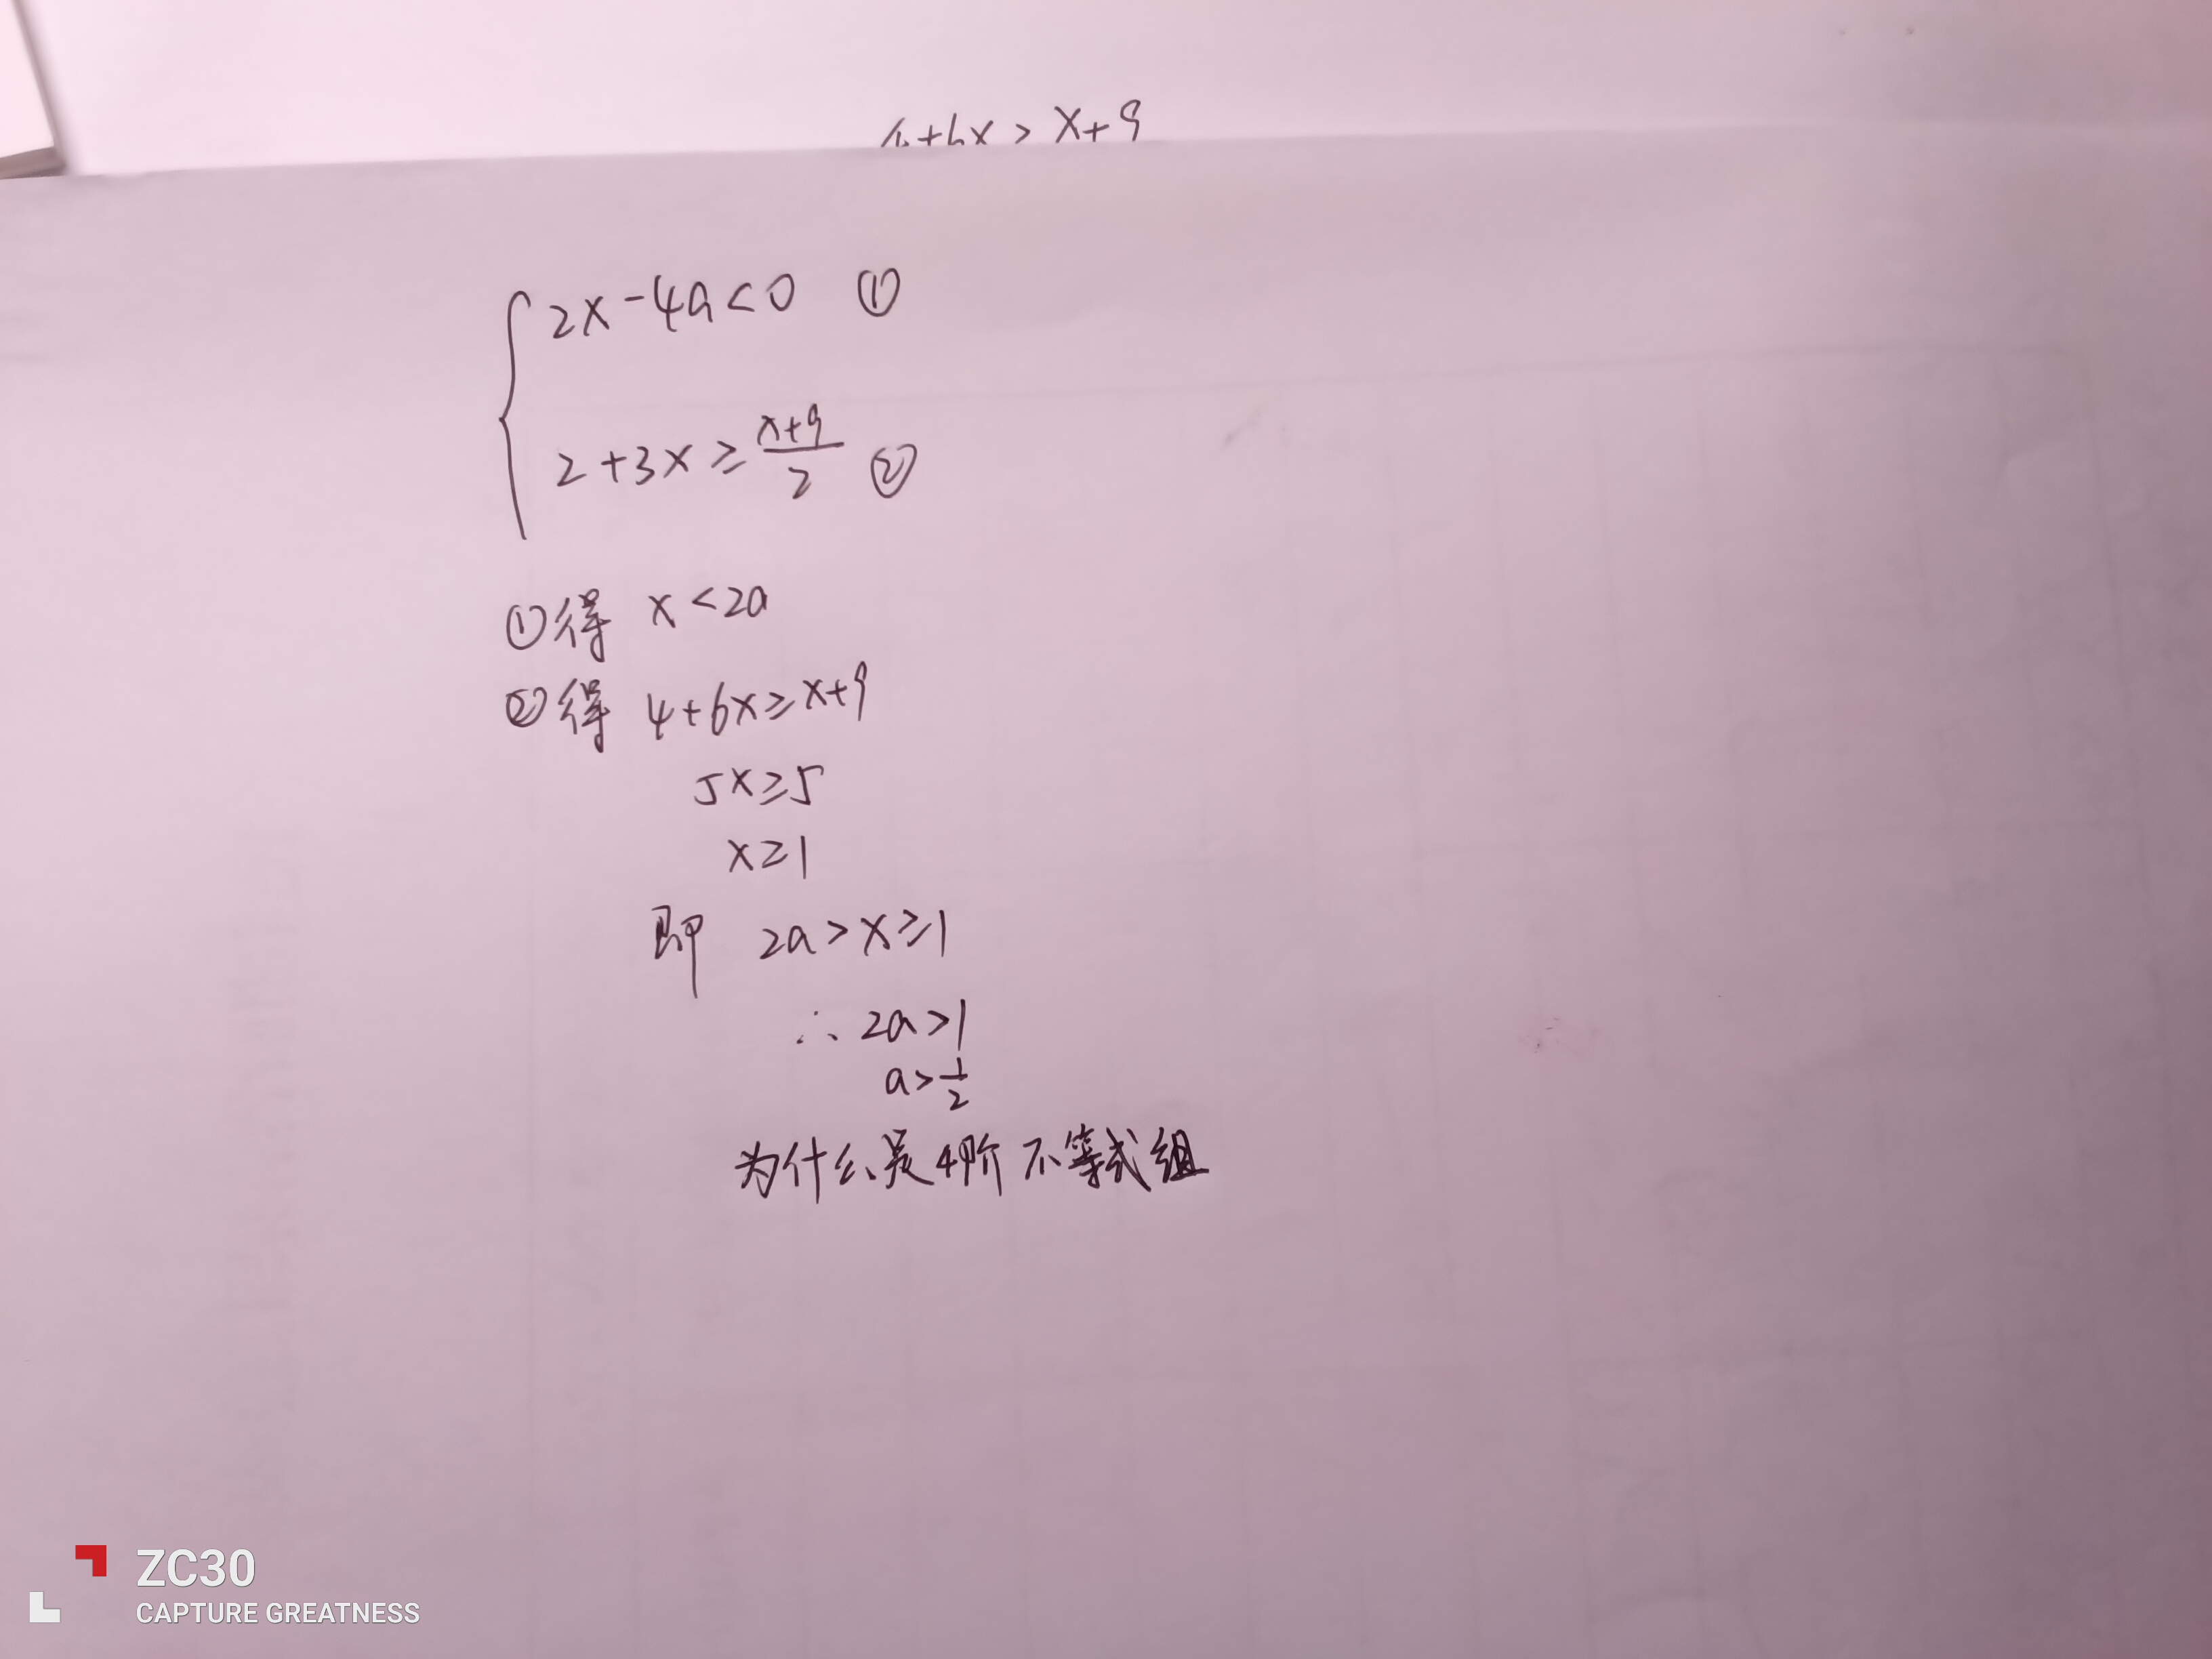 4+6x > x+9
2x-4a<0 ①
2+3x ≥ \frac{x+9}{2} ②
①得 x<2a
②得 4+6x≥x+9
5x≥5
x≥1
即 2a>x≥1
∴ 2a>1
a>\frac{1}{2}
为什么是 不等式组
ZC30
CAPTURE GREATNESS